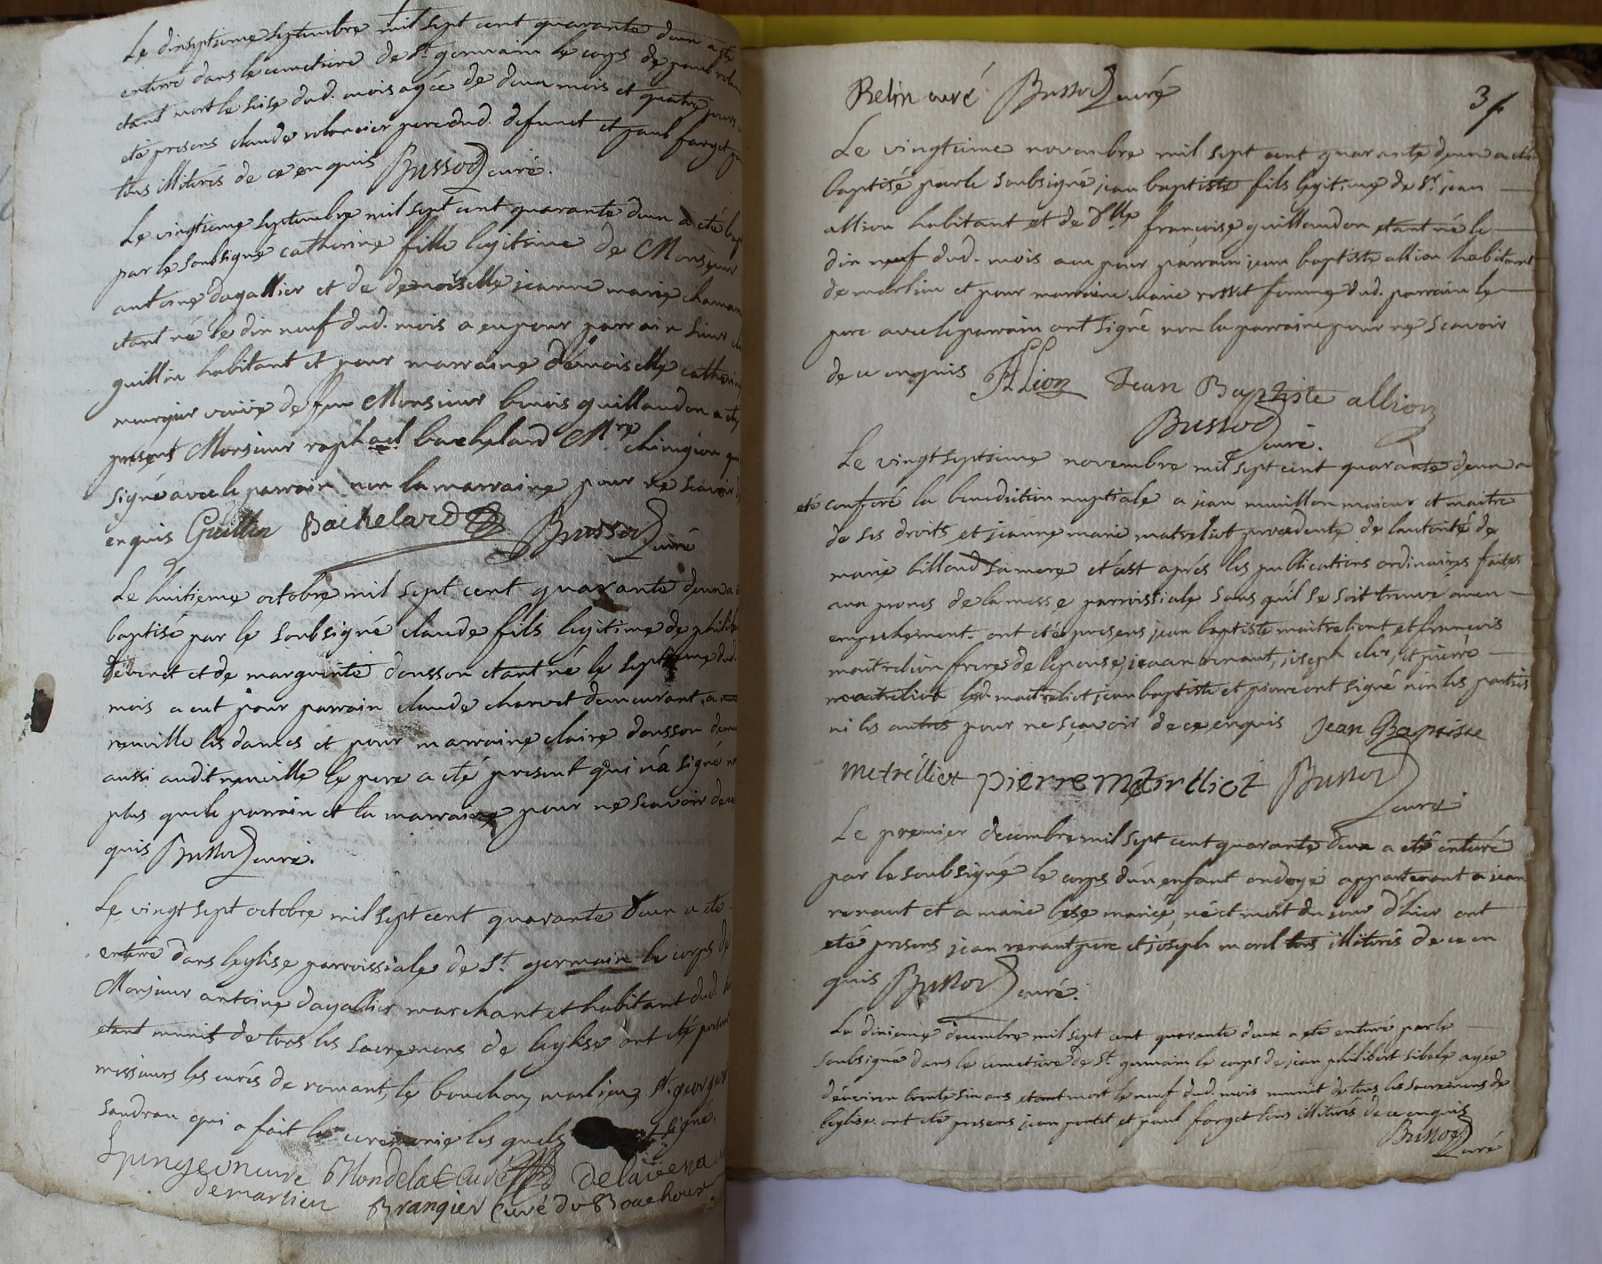 Le dixseptieme septembre mil sept cent quarante deux a été
enterré dans le cimetiere de St. germain le corps de paul
étant mort le seise dud. mois agée de deux mois et quatre jours
été presens claude pere dud. defunct et paul forget
tous illiterés de ce enquis Bussod curé.
Le vingtieme septembre mil sept cent quarante deux a été bap
par le soubsigné catherine fille legitime de Monsieur
antoine dagallier et de demoiselle jeanne marie
étant né le dix neuf dud. mois a eu pour parrain sieur
guillin habitant et pour marraine demoiselle catherine
veuve de feu Monsieur benois guillaudon a été
present Monsieur raphael bachelard Mre. chirurgien qui
signé avec le parrain non la marraine pour ne scavoir
enquis Guillin Bachelard Bussod curé
Le huitieme octobre mil sept cent quarante deux a
baptisé par le soubsigné claude fils legitime de philibe
et de marguerite dousson étant né le septieme dud.
mois a eut pour parrain claude charvet demeurant a
neuville les dames et pour marraine claire dousson dem
aussi audit neuville le pere a été present qui n'a signé n
plus que le parrain et la marraine pour ne scavoir de ce
quis Bussod curé.
Le vingt sept octobre mil sept cent quarante deux a été
enterré dans l'eglise parroissiale de St. germain le corps de
Monsieur antoine dagallier marchant et habitant dud.
étant munit de tous les sacremens de l'eglise ont été presens
messieurs les curés de romant, le bouchou, marlieu, St. george
sandran qui a fait la ceremonie les quels signé.
curé de
de marlieu Brangier Curé du Bouchoux
Relin curé Bussod curé
3
Le vingtieme novembre mil sept cent quarante deux a été
baptisé par le soubsigné jean baptiste fils legitime de Sr. jean
allion habitant et de dlle françoise guillaudon etant né le
dix neuf dud. mois a eu pour parrain jean baptiste allion habitant
de marlieu et pour marraine marie rosset femme dud. parrain le
pere avec le parrain ont signé non la marraine pour ne scavoir
de ce enquis Allion Jean Baptiste allion
Bussod curé.
Le vingt septieme novembre mil sept cent quarante deux a
été conferé la benediction nuptiale a jean muillon majeur et maitre
de ses droits et jeanne marie matreliot procedente de lautorité de
marie billoud sa mere et c'est aprés les publications ordinaires faites
aux prones de la messe parroissiale sans qu'il se soit trouvé aucun
empeschement. ont été presens jean baptiste maitreliont et francois
maitrelion freres de l'epouse, jean renaut, joseph et pierre
matreliot lesd. maitreliot jean baptiste et pierre ont signé non les parties
ni les autres pour ne scavoir de ce enquis Jean Baptiste
metrelliet pierre Metrelliot Bussod
curé.
Le premier decembre mil sept cent quarante deux a été enterré
par le soubsigné le corps d'un enfant ondoyé appartenant a jean
renaut et a marie mariés né et mort du jour d'hier ont
été presens jean renaut pere et joseph morel tous illiterés de ce en
quis Bussod curé.
Le dixieme decembre mil sept cent quarante deux a été enterré par le
soubsigné dans le cimetiere de St. germain le corps de jean philibert agée
d'environ trente six ans etant mort le neuf dud. mois munit de tous les sacremens de
l'eglise. ont été presens jean et paul forget tous illiterés de ce enquis
Bussod
curé